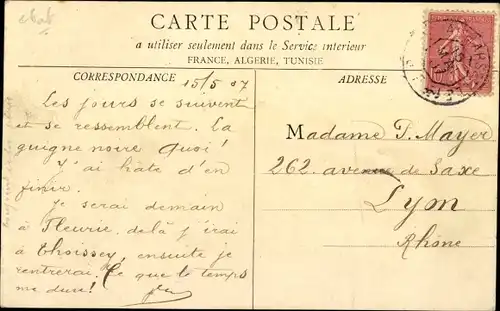 CARTE POSTALE
a utiliser seulement dans le Service interieur
FRANCE, ALGERIE, TUNISIE
CORRESPONDANCE
ADRESSE
15/5 07
Les jours se suivent
et se ressemblent. La
guigne noire Quoi!
J'ai hâte d'en
finir.
Je serai demain
à Fleurie, delà j'irai
à Thoissey, ensuite je
rentrerai. Ce que le temps
me dure!
Madame P. Mayer
262. avenue de Saxe
Lyon
Rhône